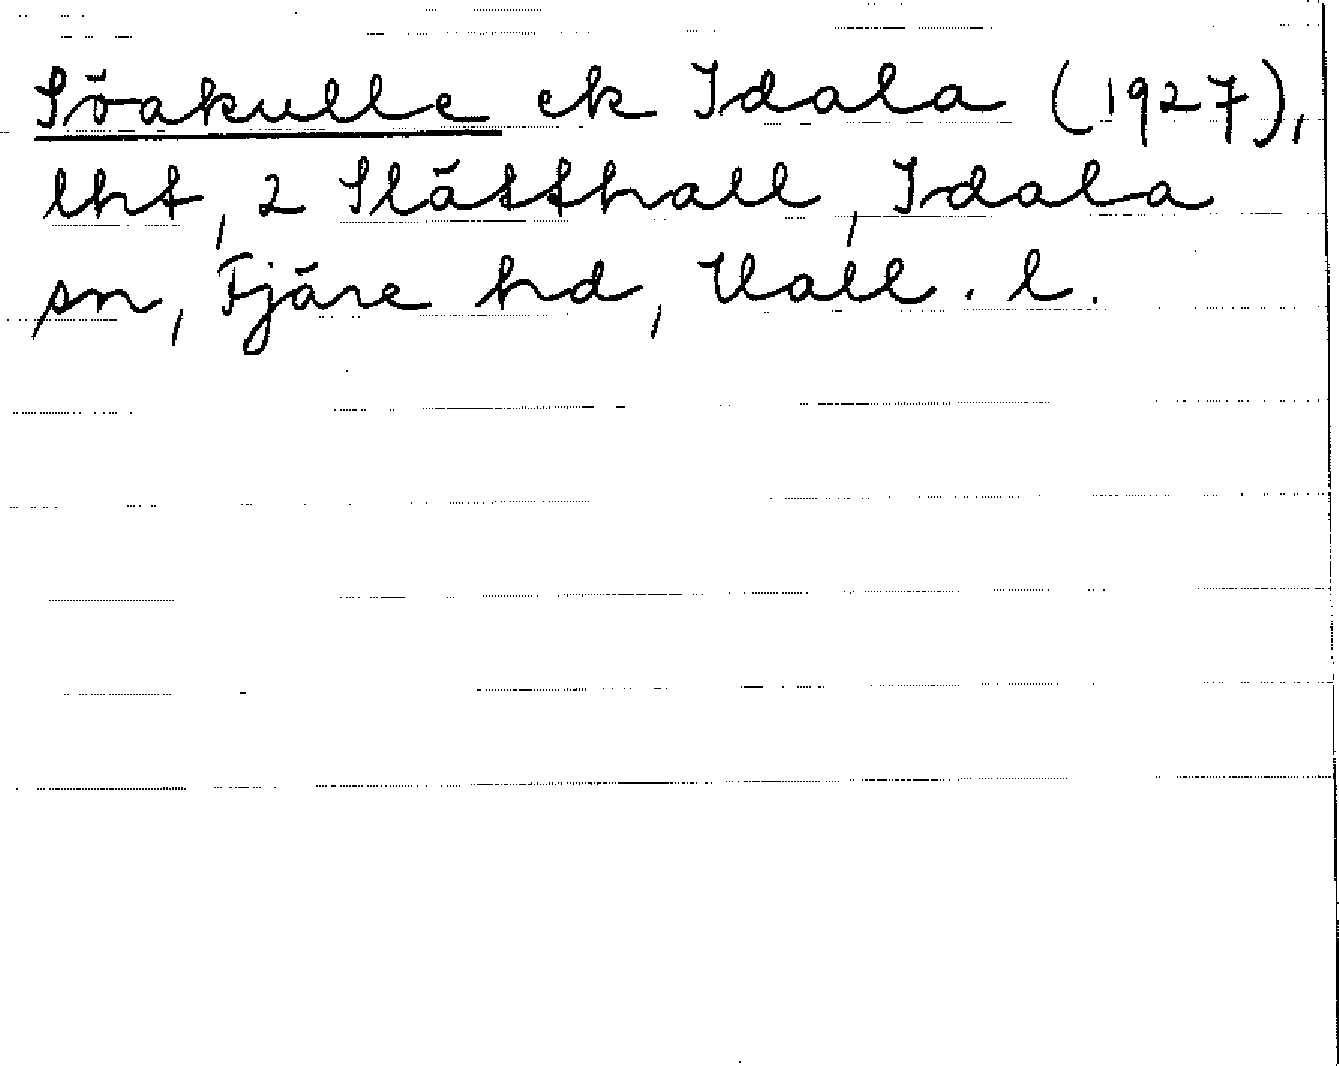 Söakulle ek Idala (1927),
lht, 2 Slätthall, Idala
sn, Fjäre hd, Hall. l.